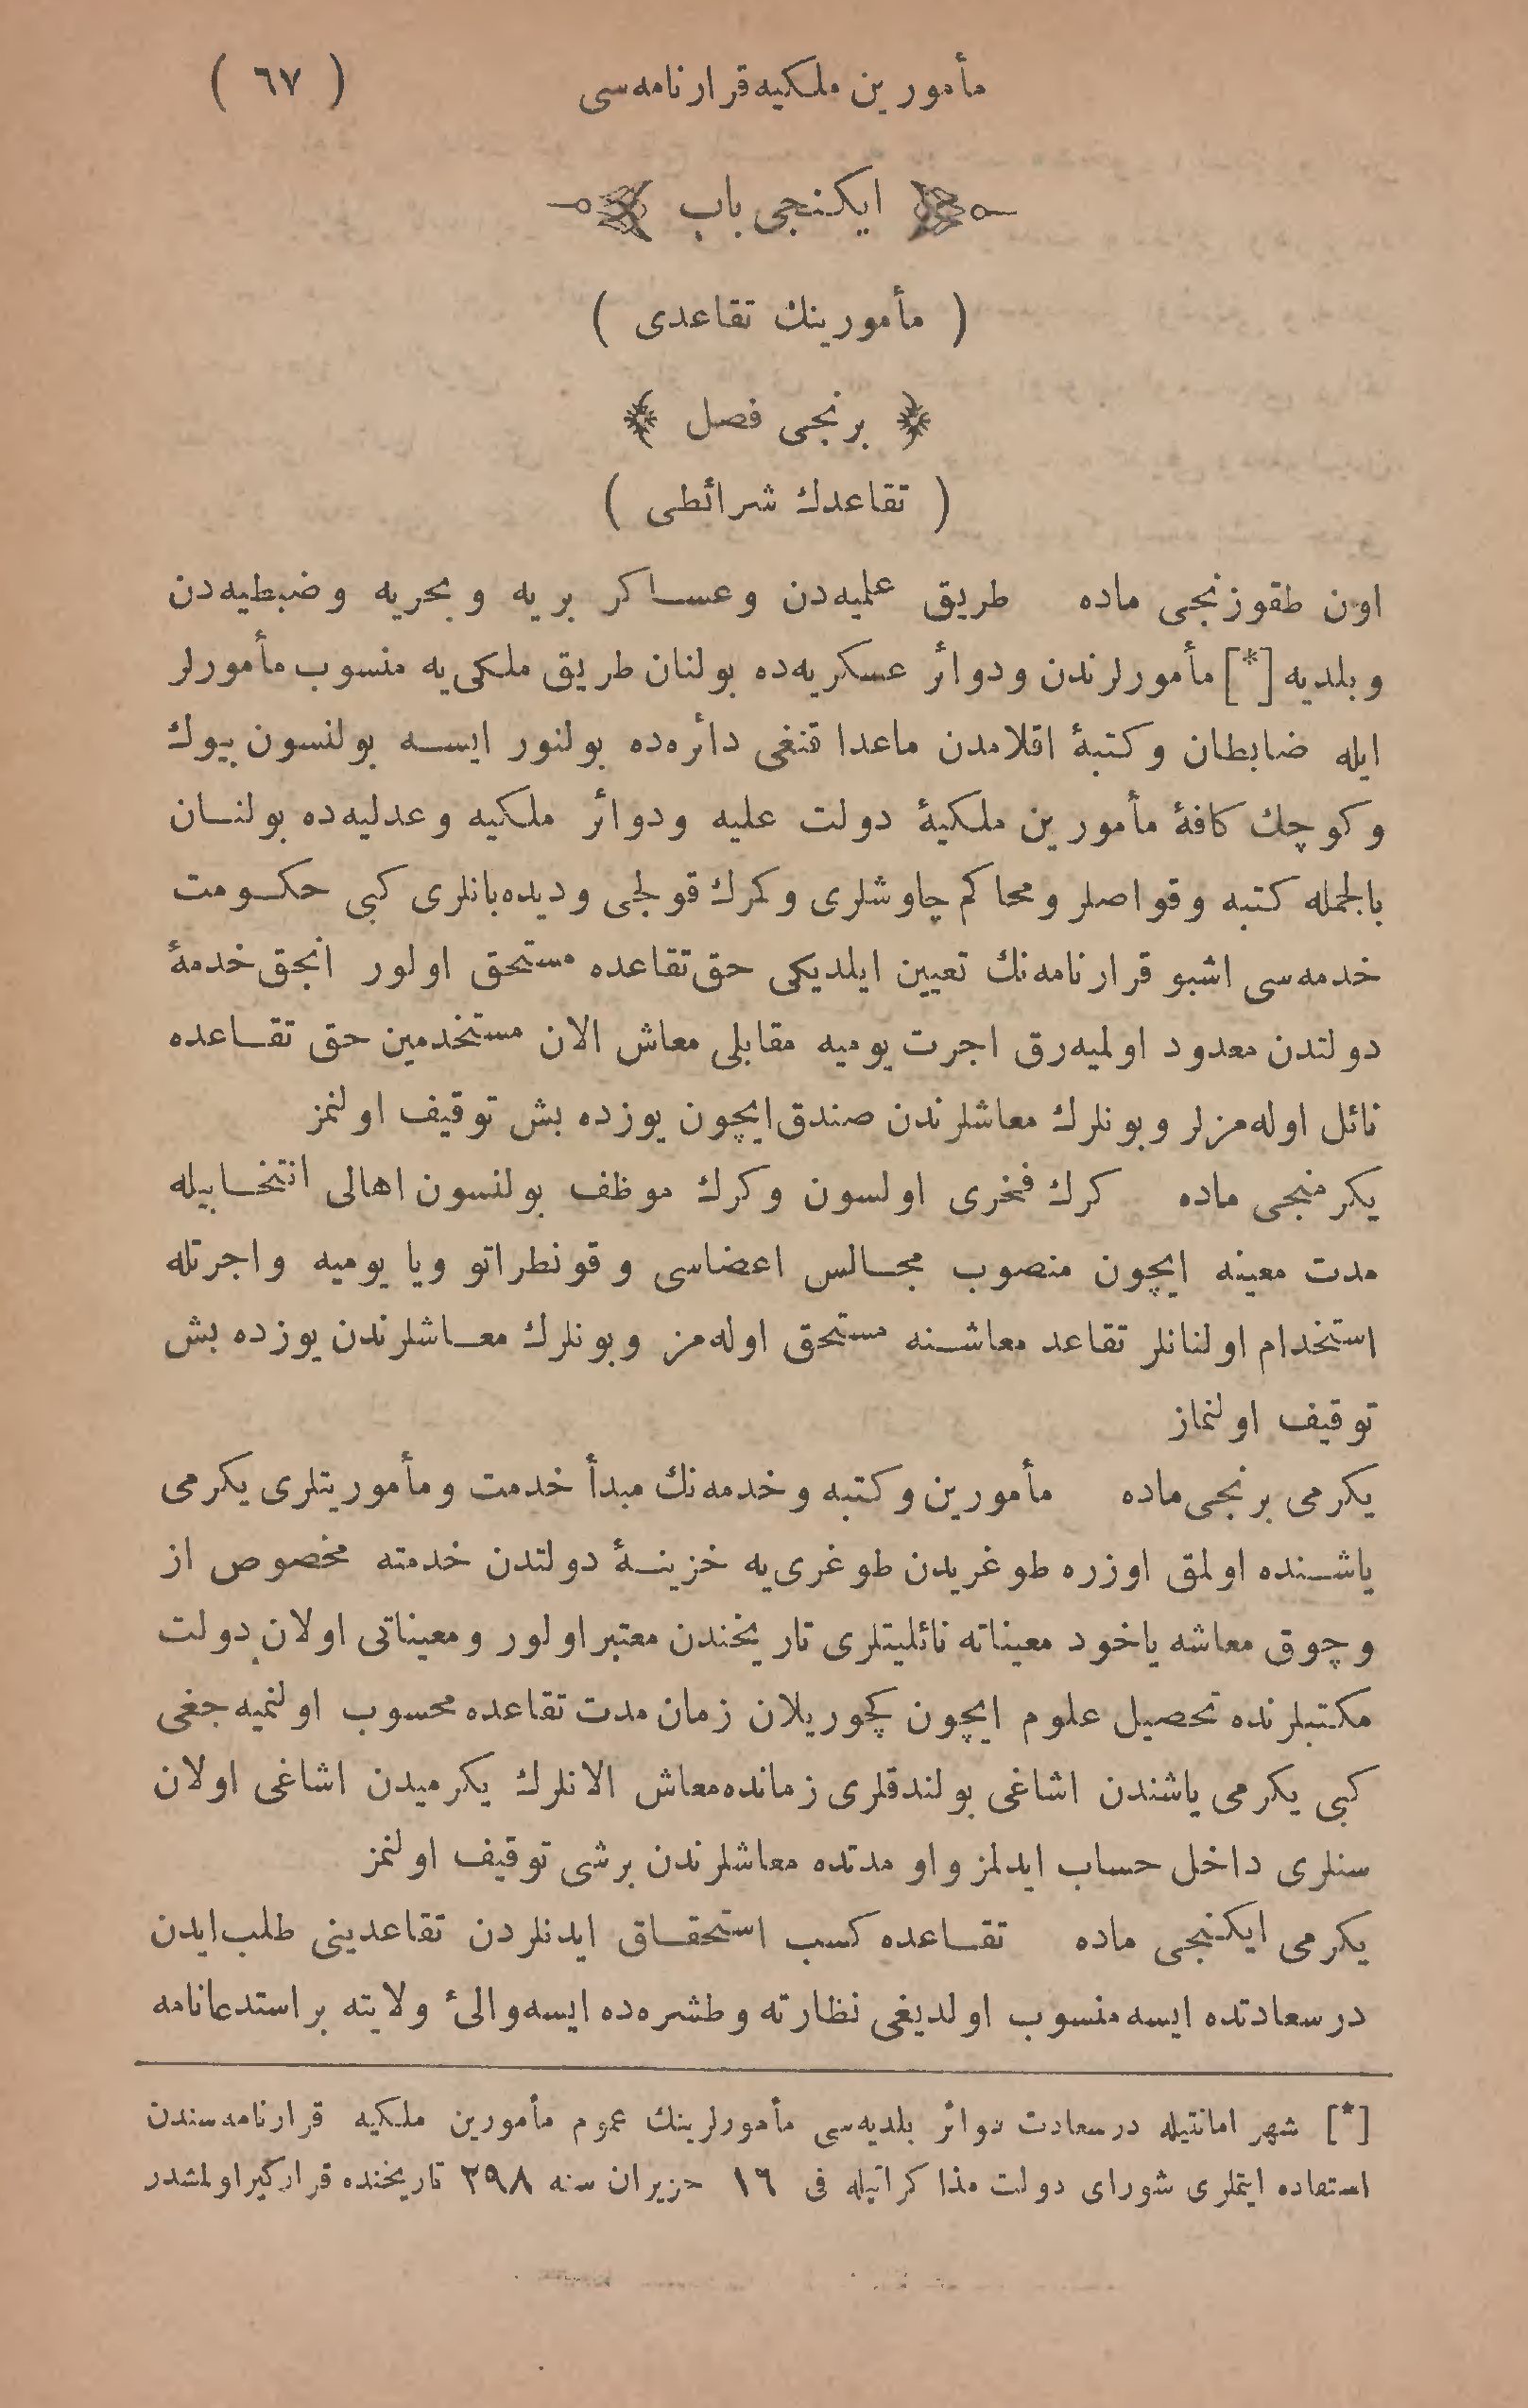 مأمورین ملکیه قرارنامه‌سی ( ٦٧ )
ایکنجی باب
( مأمورینك تقاعدی )
برنجی فصل
( تقاعدك شرائطی )
اون طقوزنجی ماده طریق علمیه‌دن وعساکر بریه و بحریه وضبطیه‌دن
وبلدیه [*] مأمورلرندن ودوائر عسکریه‌ده بولنان طریق ملکی‌یه منسوب مأمورلر
ایله ضابطان وکتبهٔ اقلامدن ماعدا قنغی دائره‌ده بولنور ایسه بولنسون بیوك
وکوچك کافهٔ مأمورین ملکیهٔ دولت علیه ودوائر ملکیه وعدلیه‌ده بولنان
بالجمله کتبه وقواصلر ومحاکم چاوشلری وکمرك قولجی ودیده‌بانلری کبی حکومت
خدمه‌سی اشبو قرارنامه‌نك تعیین ایلدیکی حق تقاعده مستحق اولور انجق خدمهٔ
دولتدن معدود اولمیه‌رق اجرت یومیه مقابلی معاش الان مستخدمین حق تقاعده
نائل اوله‌مزلر وبونلرك معاشلرندن صندق ایچون یوزده بش توقیف اولنمز
یکرمنجی ماده کرك فخری اولسون وکرك موظف بولنسون اهالی انتخابیله
مدت معینه ایچون منصوب مجالس اعضاسی وقونطراتو ویا یومیه واجرتله
استخدام اولنانلر تقاعد معاشنه مستحق اوله‌مز وبونلرك معاشلرندن یوزده بش
توقیف اولنماز
یکرمی برنجی ماده مأمورین وکتبه وخدمه‌نك مبدأ خدمت ومأموریتلری یکرمی
یاشنده اولمق اوزره طوغریدن طوغری‌یه خزینهٔ دولتدن خدمته مخصوص از
وچوق معاشه یاخود معیناته نائلیتلری تاریخندن معتبر اولور ومعیناتی اولان دولت
مکتبلرنده تحصیل علوم ایچون کچوریلان زمان مدت تقاعده محسوب اولنمیه‌جغی
کبی یکرمی یاشندن اشاغی بولندقلری زمانده معاش الانلرك یکرمیدن اشاغی اولان
سنلری داخل حساب ایدلمز واو مدتده معاشلرندن برشی توقیف اولنمز
یکرمی ایکنجی ماده تقاعده کسب استحقاق ایدنلردن تقاعدینی طلب ایدن
درسعادتده ایسه منسوب اولدیغی نظارته وطشره‌ده ایسه والیٔ ولایته براستدعانامه
[*] شهر امانتیله درسعادت دوائر بلدیه‌سی مأمورلرینك عموم مأمورین ملکیه قرارنامه‌سندن
استفاده ایتملری شورای دولت مذاکراتیله فی ١٦ حزیران سنه ٢٩٨ تاریخنده قرارکیر اولمشدر